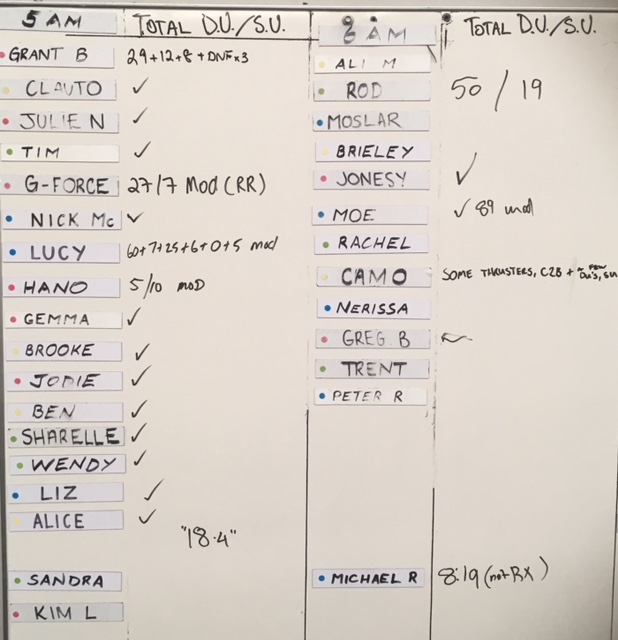 5 AM TOTAL D.U./S.U.
GRANT B 29+12+8+DNF×3
CLAUTO ✓
JULIE N ✓
TIM ✓
G-FORCE 27/7 MOD (RR)
NICK Mc ✓
LUCY 60+7+25+6+0+5 mod
HANO 5/10 MOD
GEMMA ✓
BROOKE ✓
JODIE ✓
BEN ✓
SHARELLE ✓
WENDY ✓
LIZ ✓
ALICE ✓
"18.4"
SANDRA
KIM L
8 AM TOTAL D.U./S.U.
ALI M
ROD 50/19
MOSLAR
BRIELEY
JONESY ✓
MOE ✓ 89 mod
RACHEL
CAMO SOME THRUSTERS, C2B + A FEW DU'S, SU
NERISSA
GREG B
TRENT
PETER R
MICHAEL R 8:19 (not RX)